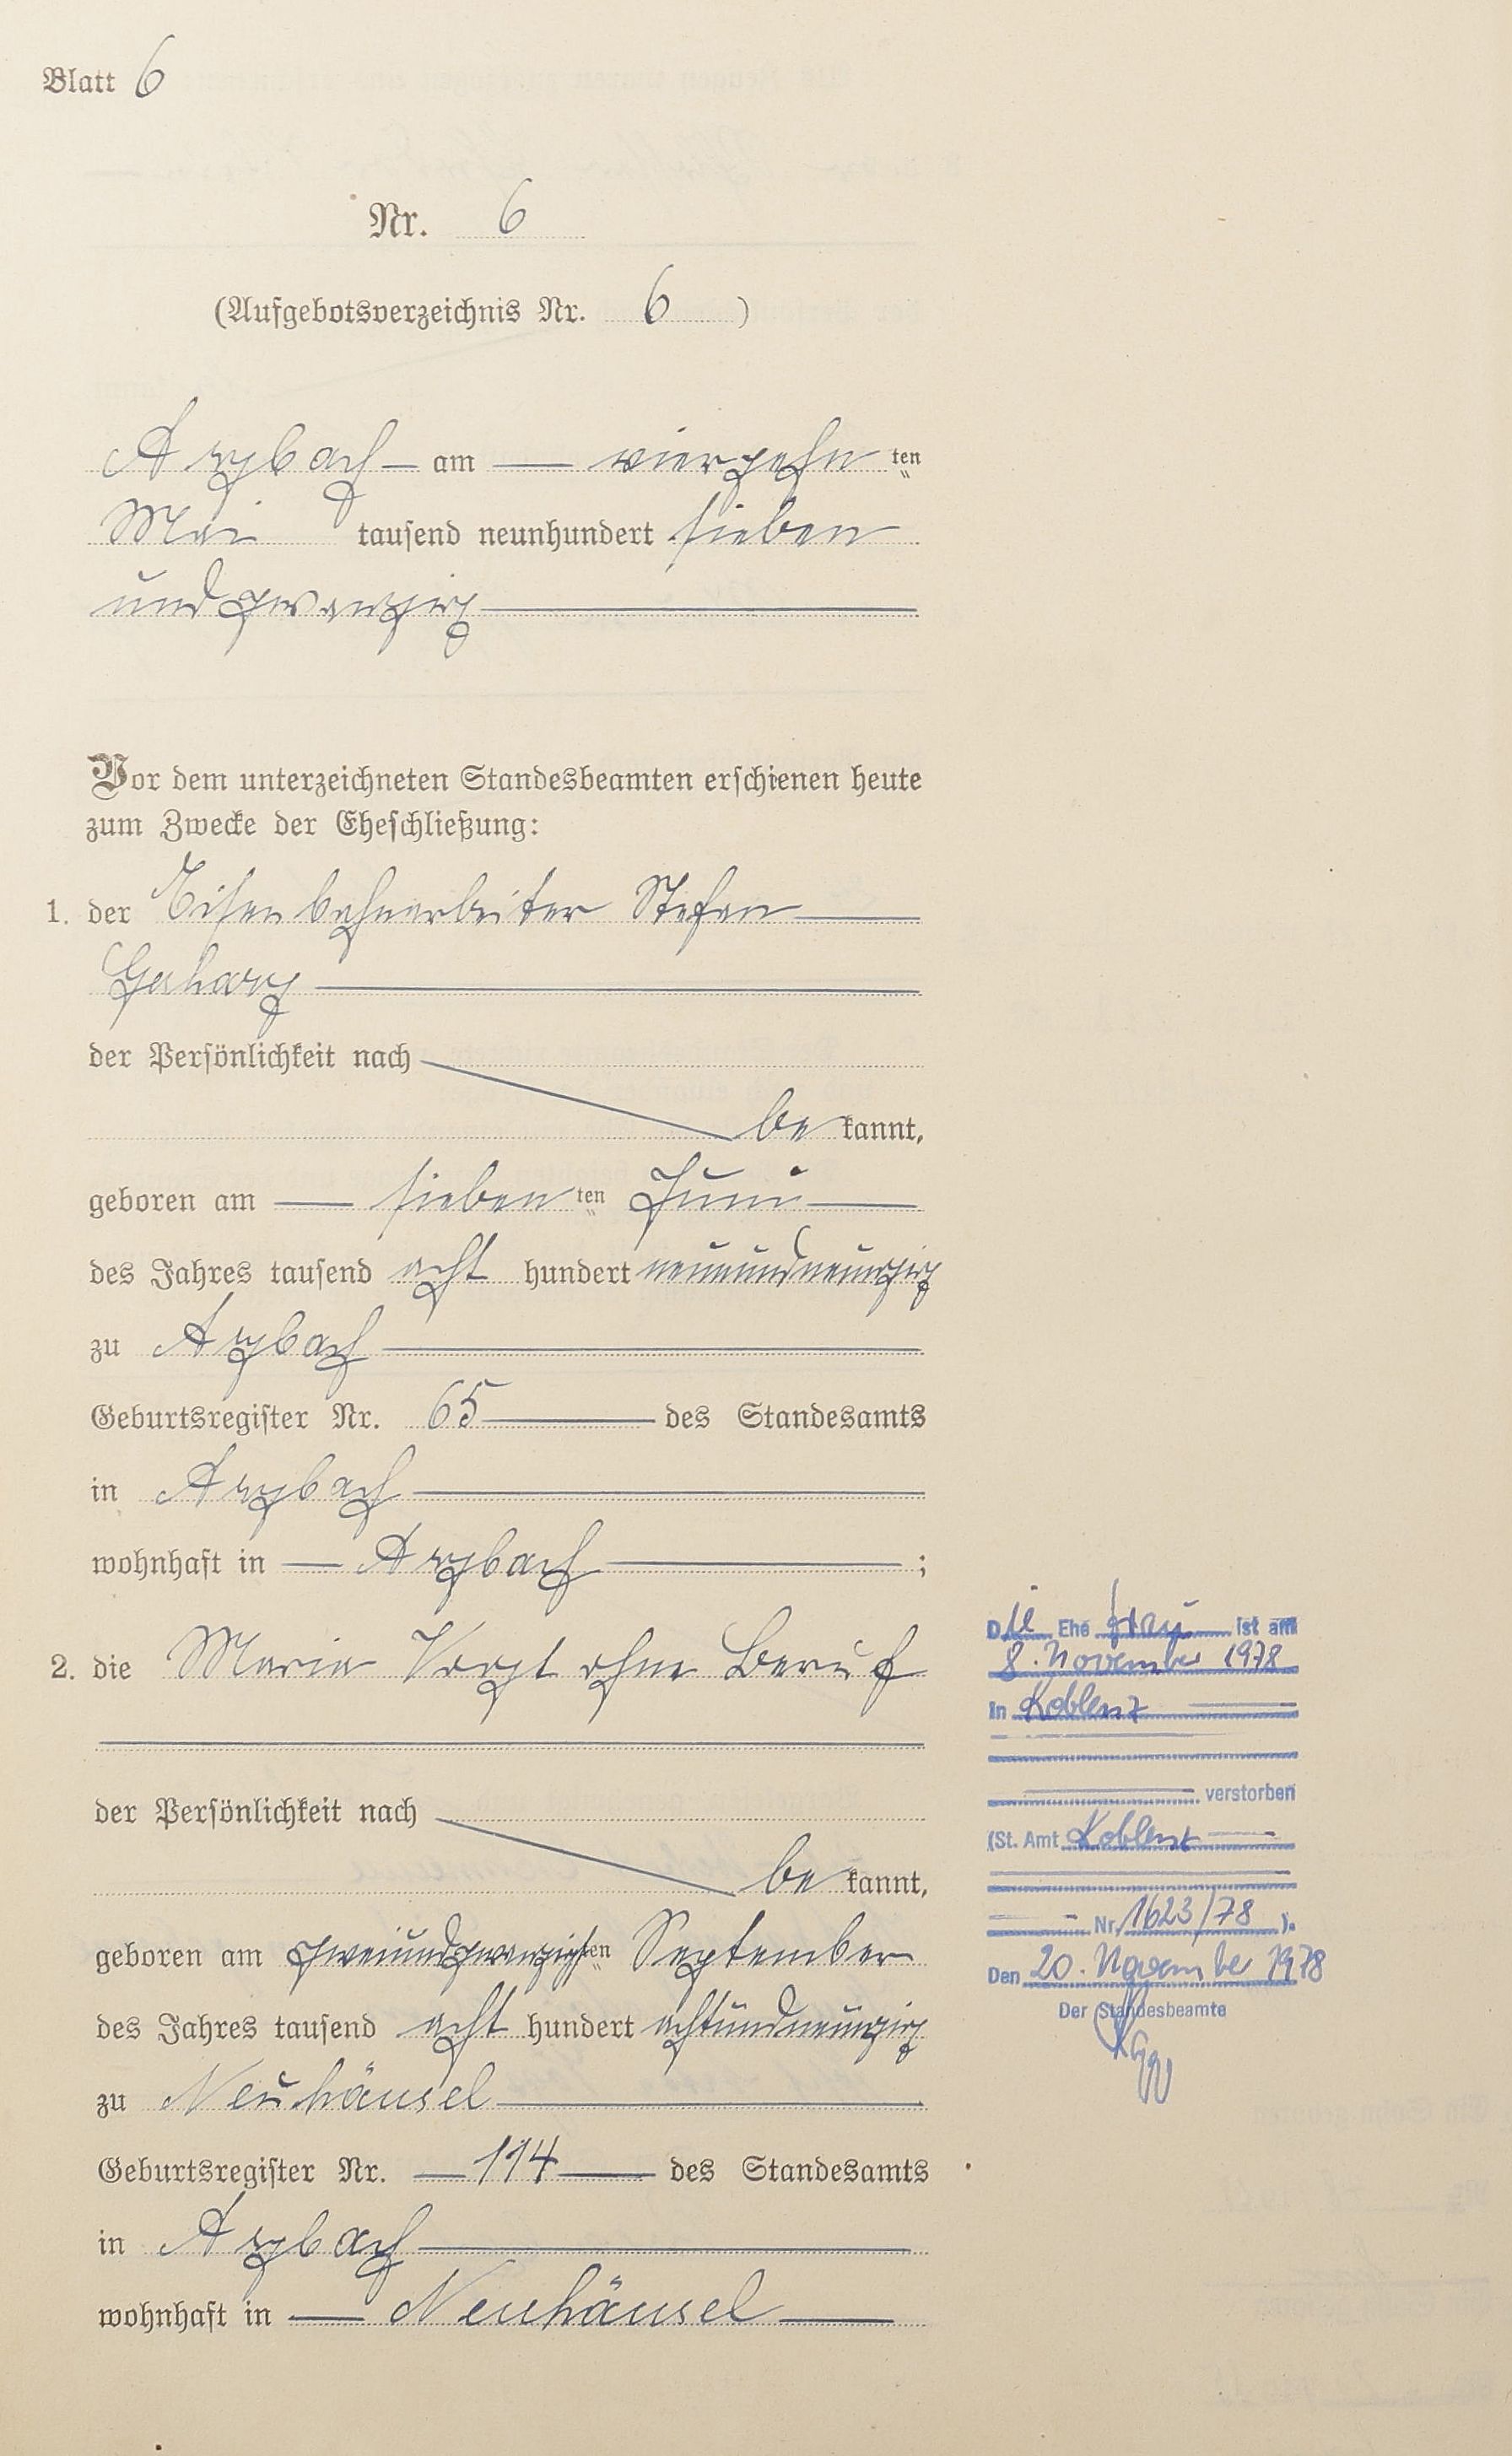 Blatt 6
Nr. 6
(Aufgebotsverzeichnis Nr. 6 )
Arzbach – am — vierzehn ten
Mai tausend neunhundert sieben
und zwanzig —
Vor dem unterzeichneten Standesbeamten erschienen heute
zum Zwecke der Eheschließung:
1. der Eisenbahnarbeiter Stefan —
Gerharz —
der Persönlichkeit nach
be kannt,
geboren am — sieben ten Juni —
des Jahres tausend acht hundert neunundneunzig
zu Arzbach —
Geburtsregister Nr. 65 — des Standesamts
in Arzbach —
wohnhaft in — Arzbach — ;
2. die Maria Vogt ohne Beruf
der Persönlichkeit nach
be kannt,
geboren am zweiundzwanzigsten September
des Jahres tausend acht hundert achtundneunzig
zu Neuhäusel —
Geburtsregister Nr. — 114 — des Standesamts
in Arzbach —
wohnhaft in — Neuhäusel —
Die Ehe frau ist am
8. November 1978
in Koblenz
verstorben
(St. Amt Koblenz
Nr. 1623/78 ).
Den 20. November 1978
Der Standesbeamte